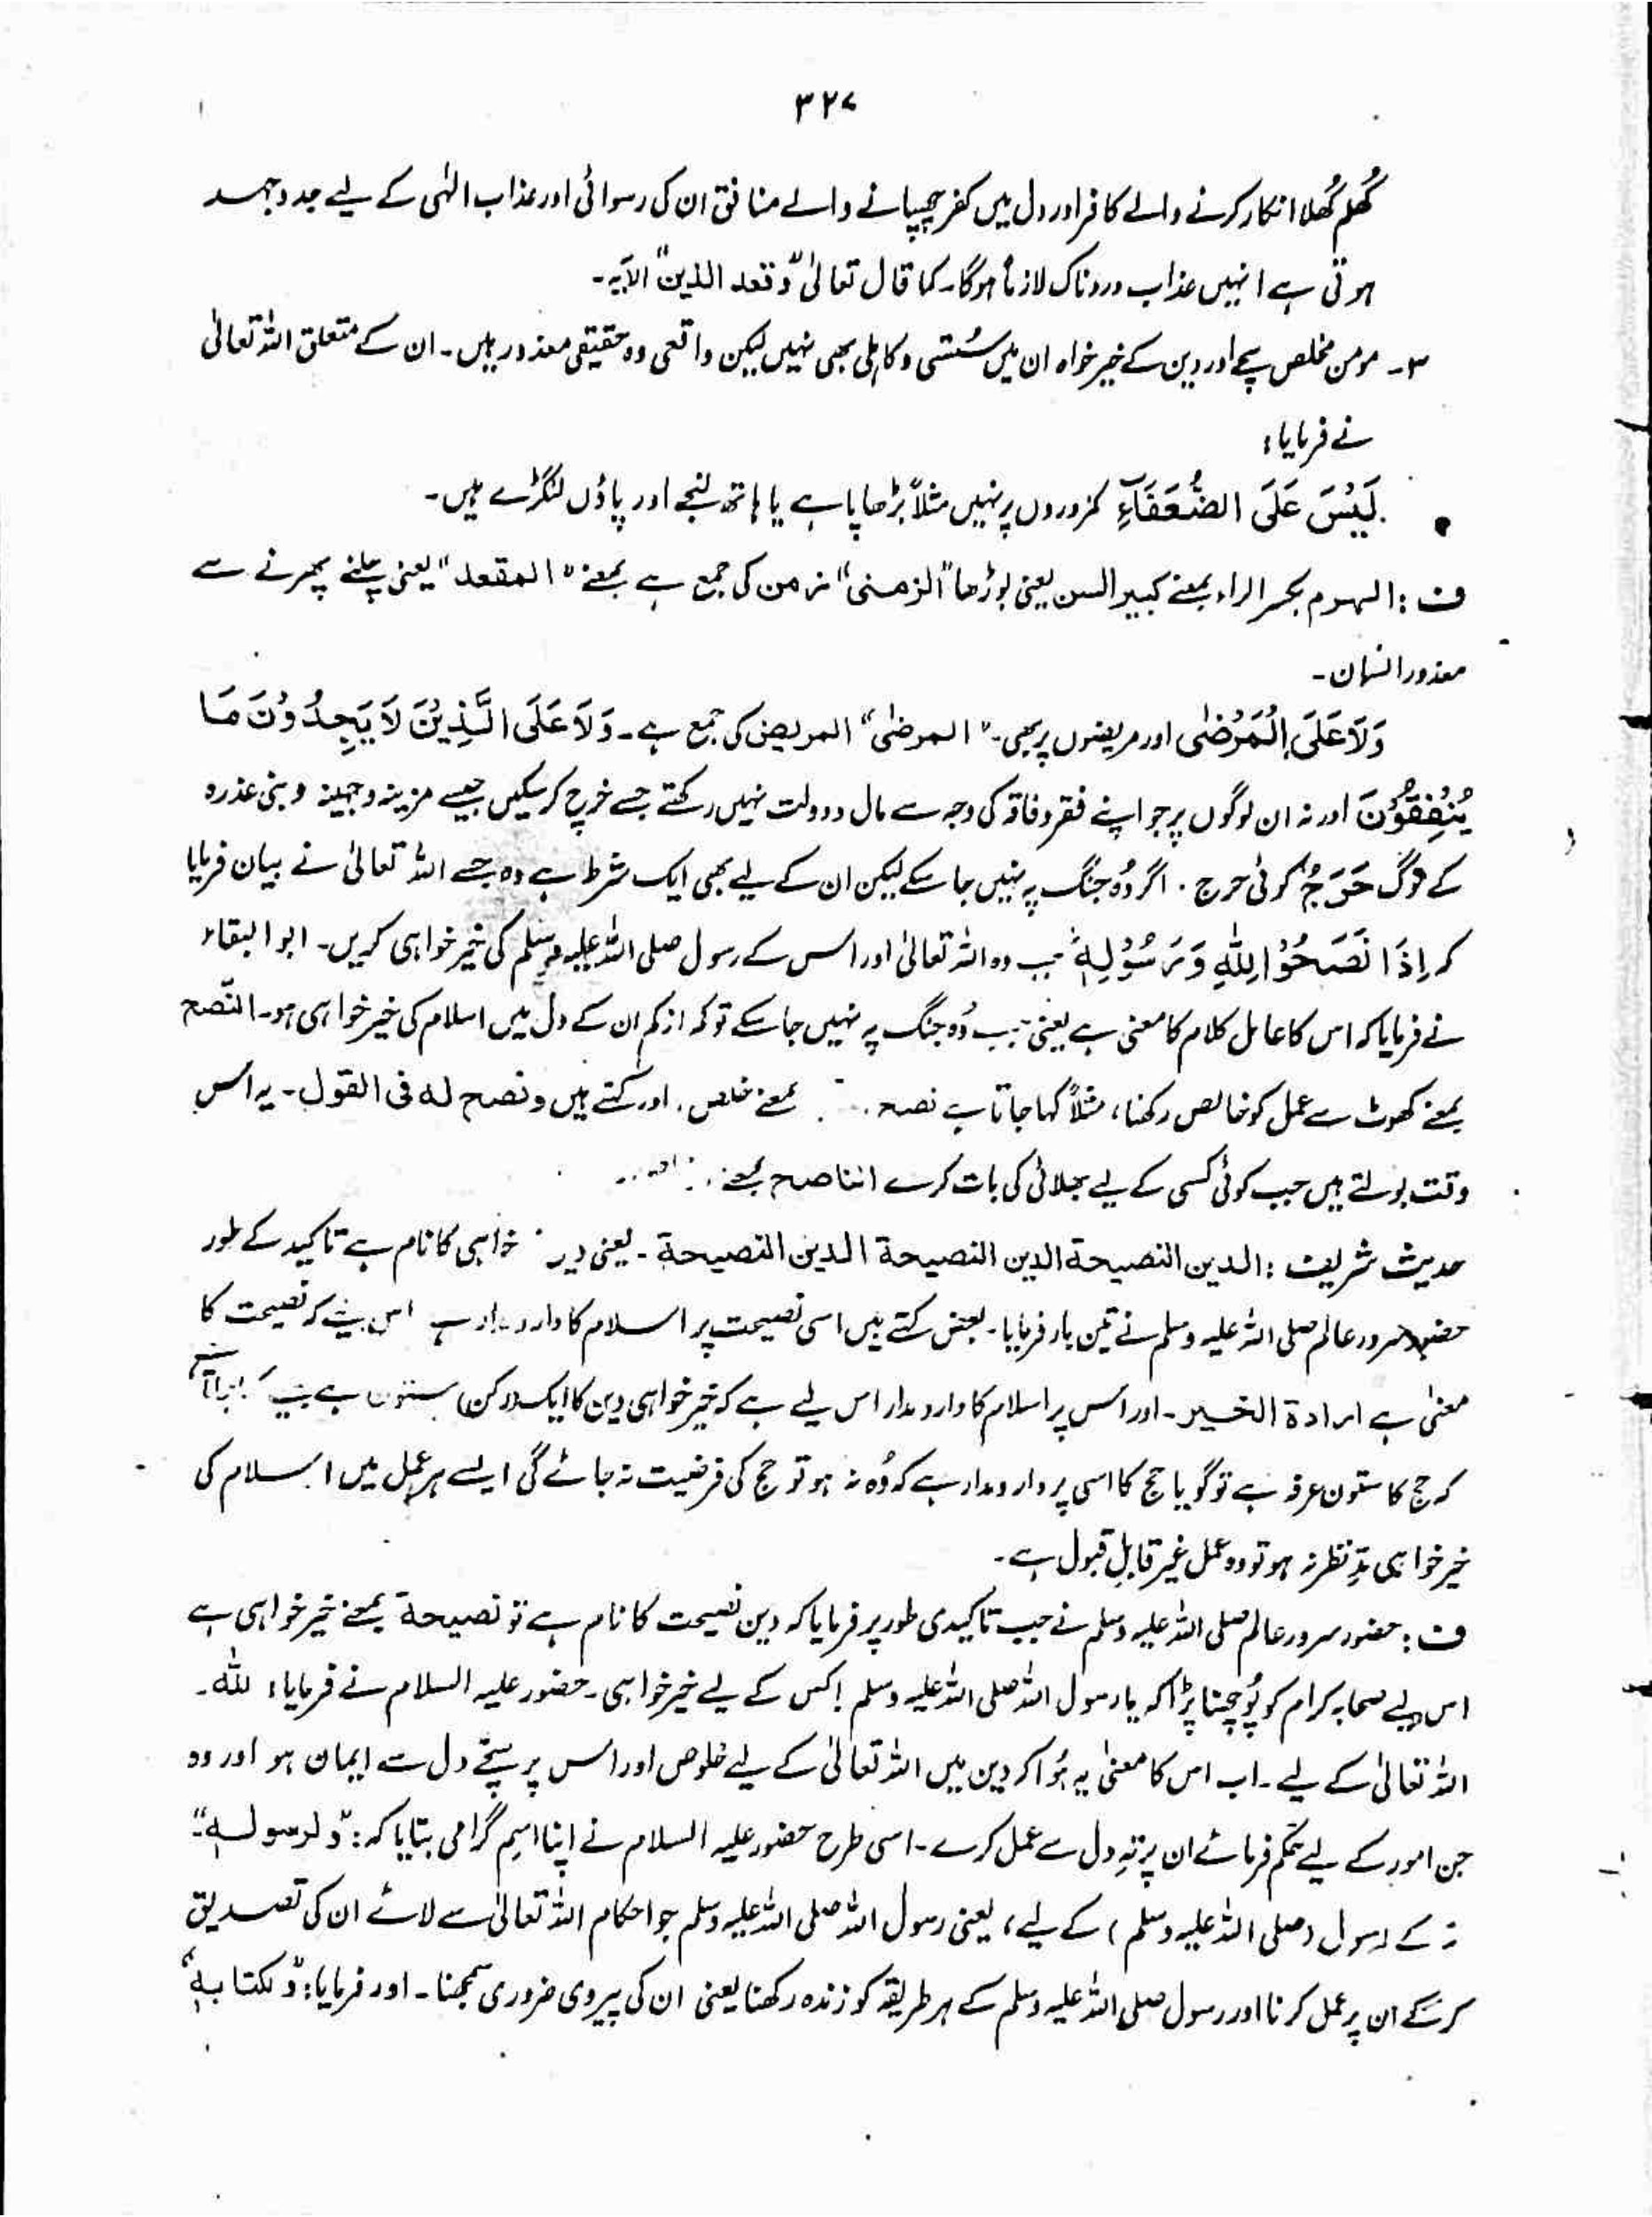 ۳۲۷
کُھلم کُھلا انکار کرنے والے کافر اور دل میں کفر چھپانے والے منافق ان کی رسوائی اور عذاب الٰہی کے لیے جدوجہد
ہوتی ہے انہیں عذاب دردناک لازماً ہوگا۔ کما قال تعالیٰ "وقعد الذین" الآیہ۔
۳۔ مومن مخلص سچے اور دین کے خیر خواہ ان میں سُستی و کاہلی بھی نہیں لیکن واقعی وہ حقیقی معذور ہیں۔ ان کے متعلق اللہ تعالیٰ
نے فرمایا:
• لَيْسَ عَلَى الضُّعَفَآءِ کمزوروں پر نہیں مثلاً بڑھاپا ہے یا ہاتھ لنجے اور پاؤں لنگڑے ہیں۔
ف: الہرم بکسر الراء بمعنے کبیر السن یعنی بوڑھا "الزمنی" زمن کی جمع ہے بمعنے "المقعد" یعنی چلنے پھرنے سے
معذور انسان۔
وَلَا عَلَى الْمَرْضٰى اور مریضوں پر بھی۔ "المرضٰی" المریض کی جمع ہے۔ وَلَا عَلَى الَّذِيْنَ لَا يَجِدُوْنَ مَا
يُنْفِقُوْنَ اور نہ ان لوگوں پر جو اپنے فقر و فاقہ کی وجہ سے مال و دولت نہیں رکھتے جسے خرچ کر سکیں جیسے مزینہ و جہینہ و بنی عذرہ
کے لوگ حَرَجٌ کوئی حرج۔ اگر وُہ جنگ پہ نہیں جا سکے لیکن ان کے لیے بھی ایک شرط ہے وہ جسے اللہ تعالیٰ نے بیان فرمایا
کہ اِذَا نَصَحُوْا لِلّٰهِ وَرَسُوْلِهٖ جب وہ اللہ تعالیٰ اور اس کے رسول صلی اللہ علیہ وسلم کی خیر خواہی کریں۔ ابوالبقاء
نے فرمایا کہ اس کا عامل کلام کا معنی ہے یعنی جب وُہ جنگ پہ نہیں جا سکے تو کم از کم ان کے دل میں اسلام کی خیر خواہی ہو۔ النّصح
بمعنے کھوٹ سے عمل کو خالص رکھنا، مثلاً کہا جاتا ہے نصح بمعنے خلص، اور کہتے ہیں ونصح لہ فی القول۔ یہ اس
وقت بولتے ہیں جب کوئی کسی کے لیے بھلائی کی بات کرے الناصح بمعنے
حدیث شریف: الدین النصیحة الدین النصیحة الدین النصیحة۔ یعنی دین خواہی کا نام ہے تاکید کے طور
حضور سرور عالم صلی اللہ علیہ وسلم نے تین بار فرمایا۔ بعض کہتے ہیں اسی نصیحت پر اسلام کا دار و مدار ہے اس لیے کہ نصیحت کا
معنیٰ ہے ارادة الخیر۔ اور اس پر اسلام کا دار و مدار اس لیے ہے کہ خیر خواہی دین کا ایک (رکن) ستون ہے
کہ حج کا ستون عرفہ ہے تو گویا حج کا اسی پر دار و مدار ہے کہ وُہ نہ ہو تو حج کی فرضیت نہ جائے گی ایسے ہر عمل میں اسلام کی
خیر خواہی مدِّنظر نہ ہو تو وہ عمل غیر قابلِ قبول ہے۔
ف: حضور سرور عالم صلی اللہ علیہ وسلم نے جب تاکیدی طور پر فرمایا کہ دین نصیحت کا نام ہے تو نصیحة بمعنے خیر خواہی ہے
اس لیے صحابہ کرام کو پُوچھنا پڑا کہ یا رسول اللہ صلی اللہ علیہ وسلم! کس کے لیے خیر خواہی۔ حضور علیہ السلام نے فرمایا: للّٰہ۔
اللہ تعالیٰ کے لیے۔ اب اس کا معنیٰ یہ ہُوا کہ دین میں اللہ تعالیٰ کے لیے خلوص اور اس پر سچّے دل سے ایمان ہو اور وہ
جن امور کے لیے حکم فرمائے ان پر تہِ دل سے عمل کرے۔ اسی طرح حضور علیہ السلام نے اپنا اسم گرامی بتایا کہ: "ولرسولہٖ"۔
کے رسول (صلی اللہ علیہ وسلم) کے لیے، یعنی رسول اللہ صلی اللہ علیہ وسلم جو احکام اللہ تعالیٰ سے لائے ان کی تصدیق
کر کے ان پر عمل کرنا اور رسول صلی اللہ علیہ وسلم کے ہر طریقہ کو زندہ رکھنا یعنی ان کی پیروی ضروری سمجھنا۔ اور فرمایا: "ولکتابہٖ"